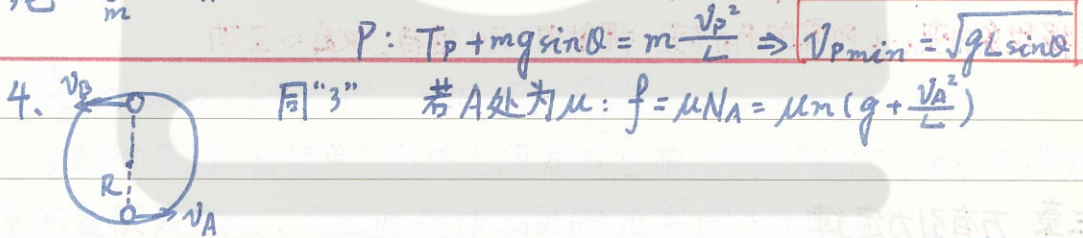 m
P: T_P + mg sinθ = m v_P²/L ⇒ v_Pmin = √(gL sinθ)
4、 v_B 同“3” 若A处为μ: f = μN_A = μm(g + v_A²/L)
R
v_A